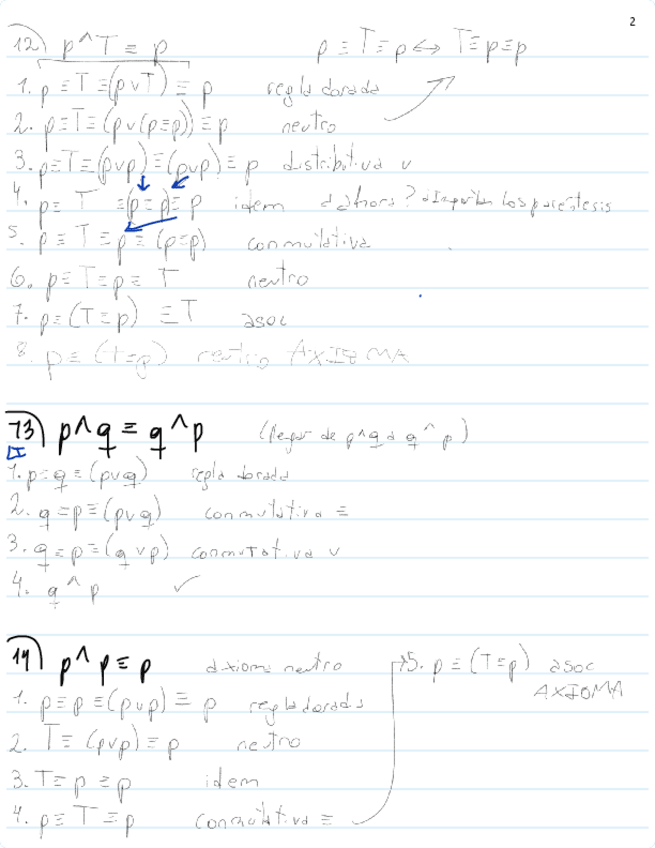 2
12) p ^ T ≡ p
p ≡ T ≡ p ↔ T ≡ p ≡ p
1. p ≡ T ≡ (p v T) ≡ p regla dorada
2. p ≡ T ≡ (p v (p ≡ p)) ≡ p neutro
3. p ≡ T ≡ (p v p) ≡ (p v p) ≡ p distributiva v
4. p ≡ T ≡ (p ≡ p) ≡ p idem ¿ahora? ¿Importan los paréntesis
5. p ≡ T ≡ p ≡ (p ≡ p) conmutativa
6. p ≡ T ≡ p ≡ T neutro
7. p ≡ (T ≡ p) ≡ T asoc
8. p ≡ (T ≡ p) neutro AXIOMA
13) p ^ q ≡ q ^ p (llegar de p ^ q a q ^ p)
1. p ≡ q ≡ (p v q) regla dorada
2. q ≡ p ≡ (p v q) conmutativa ≡
3. q ≡ p ≡ (q v p) conmutativa v
4. q ^ p ✓
14) p ^ p ≡ p axioma neutro
1. p ≡ p ≡ (p v p) ≡ p regla dorada
2. T ≡ (p v p) ≡ p neutro
3. T ≡ p ≡ p idem
4. p ≡ T ≡ p conmutativa ≡
→ 5. p ≡ (T ≡ p) asoc
AXIOMA